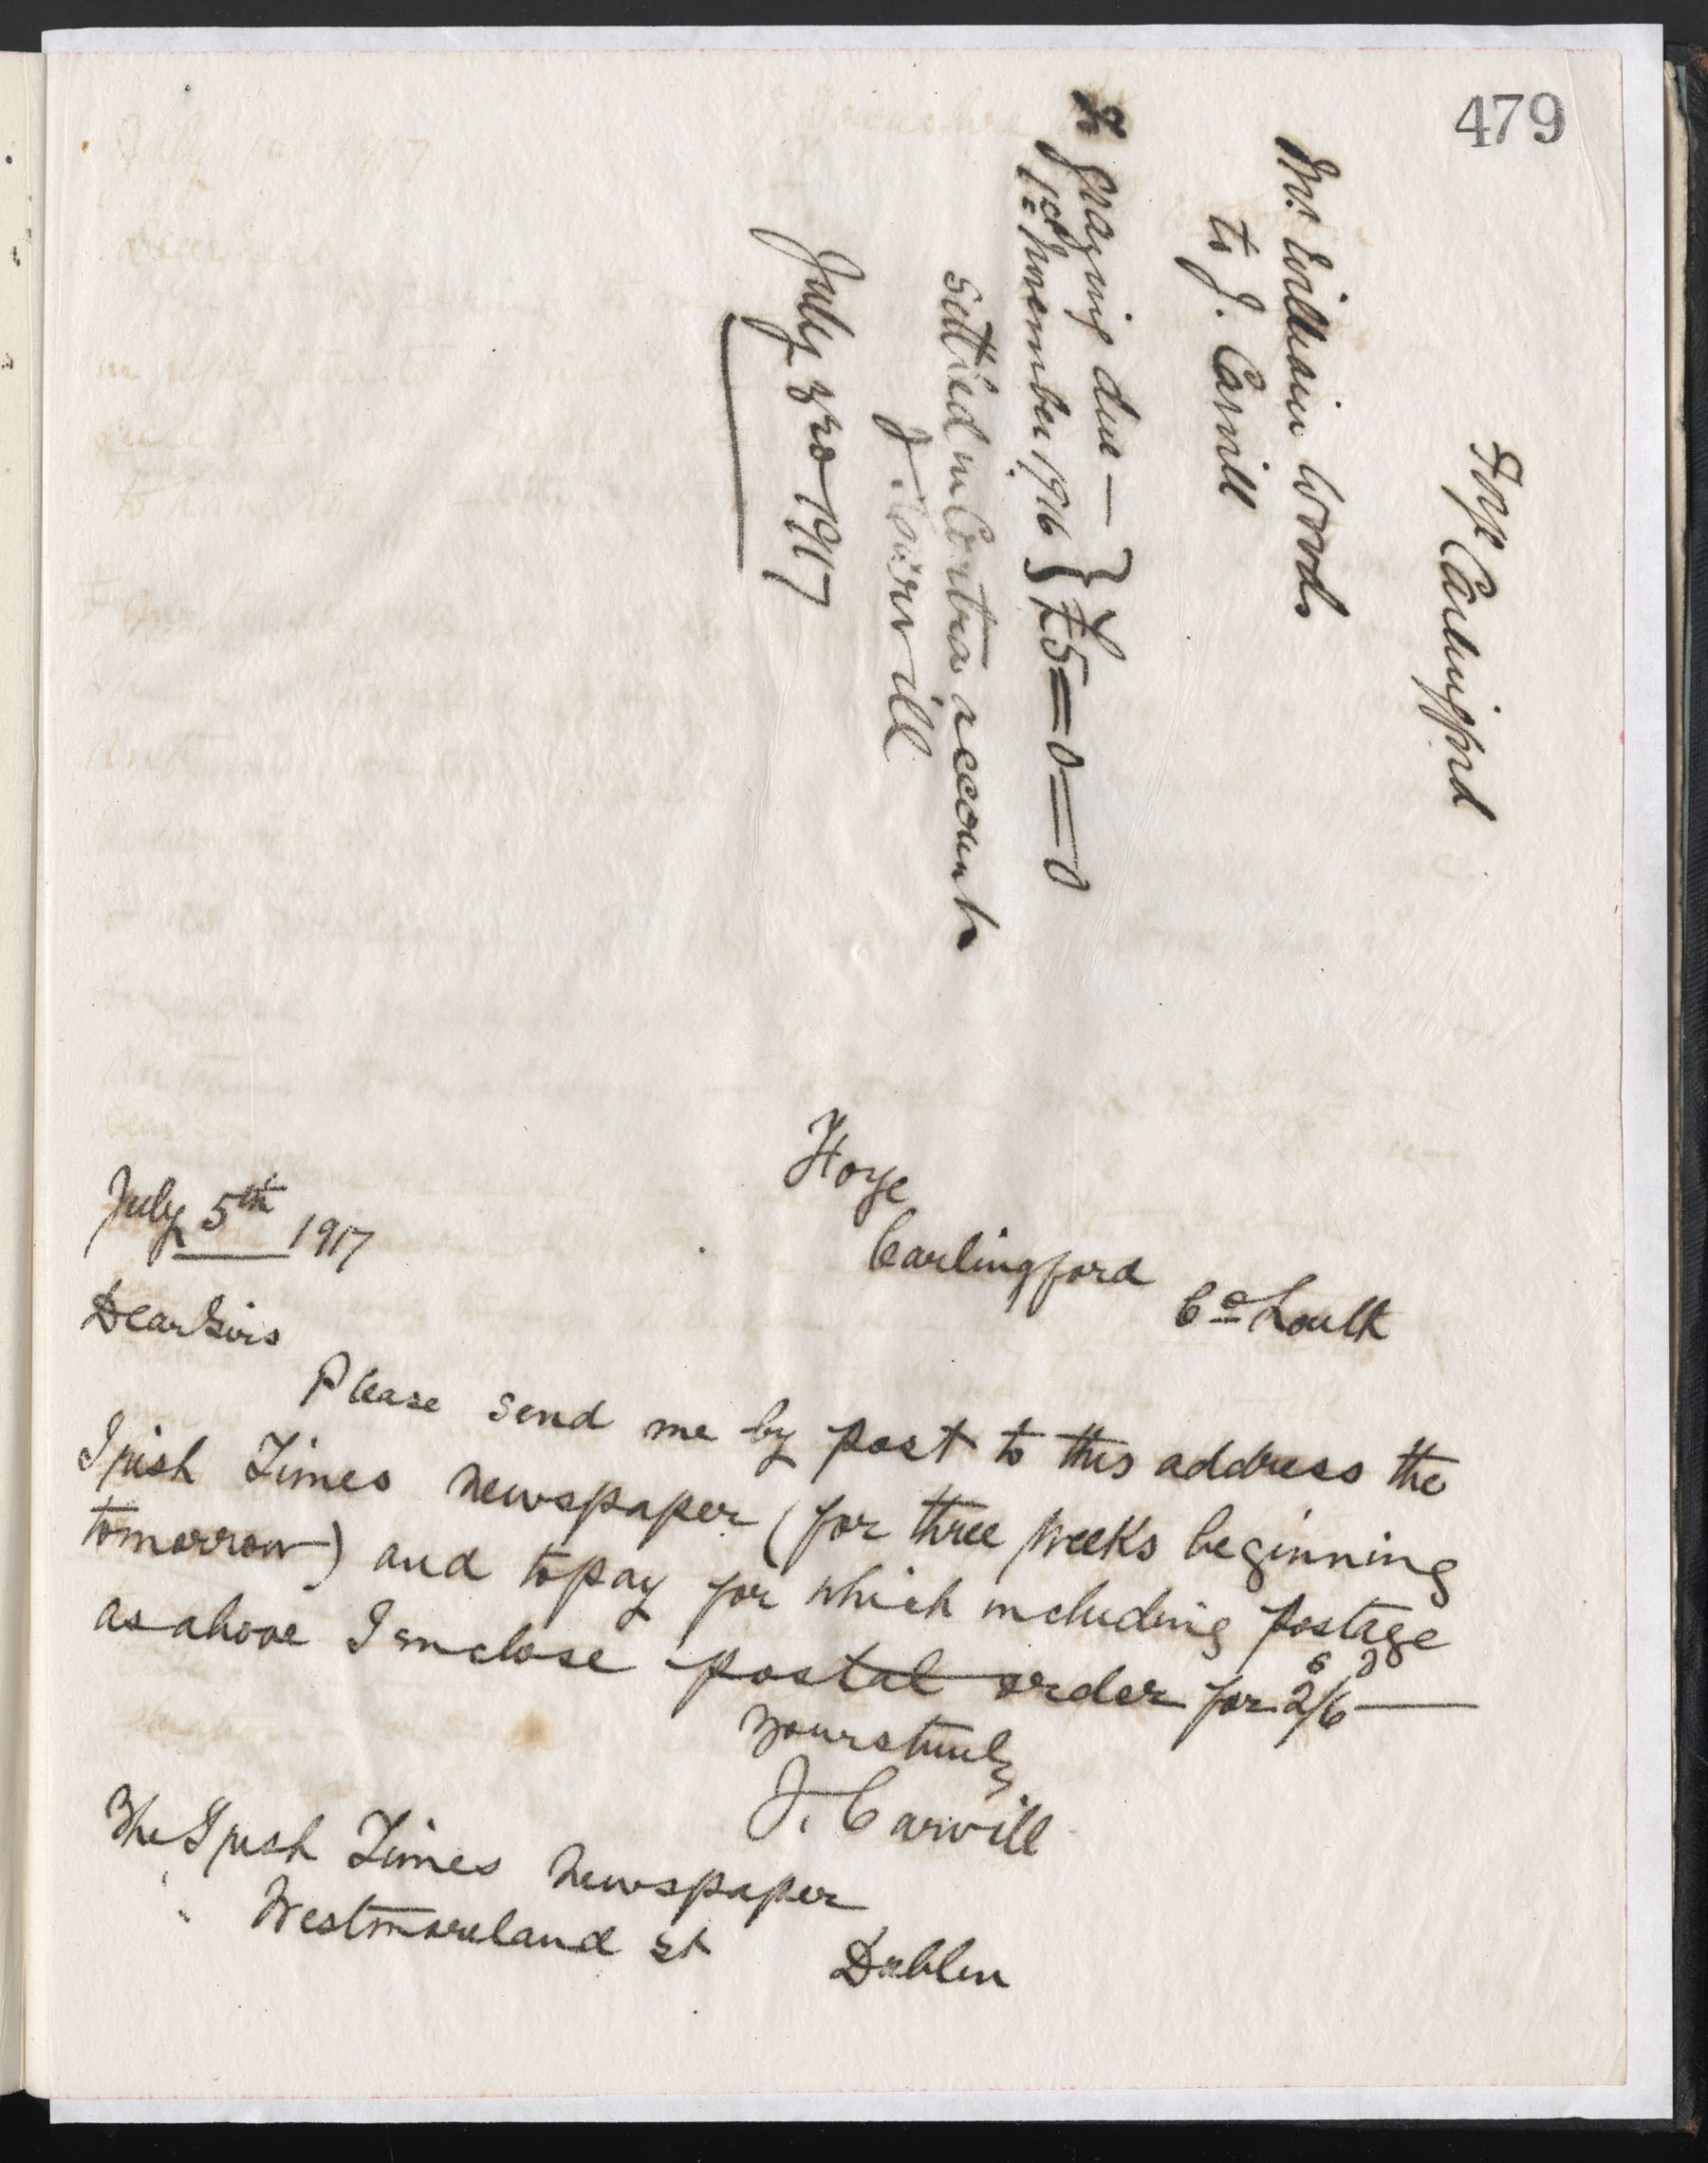 479
Foye Carlingford
Mr. William Woods
to J. Carvill
To grazing due —
1st November 1916 } £5=0=0
Settled in Contra account
J. Carvill
July 3rd 1917
Foye
Carlingford
Co Louth
July 5th 1917
Dear Sirs
Please send me by post to this address the
Irish Times newspaper (for three weeks beginning
tomorrow) and to pay for which including postage
as above I enclose postal order for 2s/6d —
Yours truly
J. Carvill
The Irish Times Newspaper
Westmoreland St
Dublin